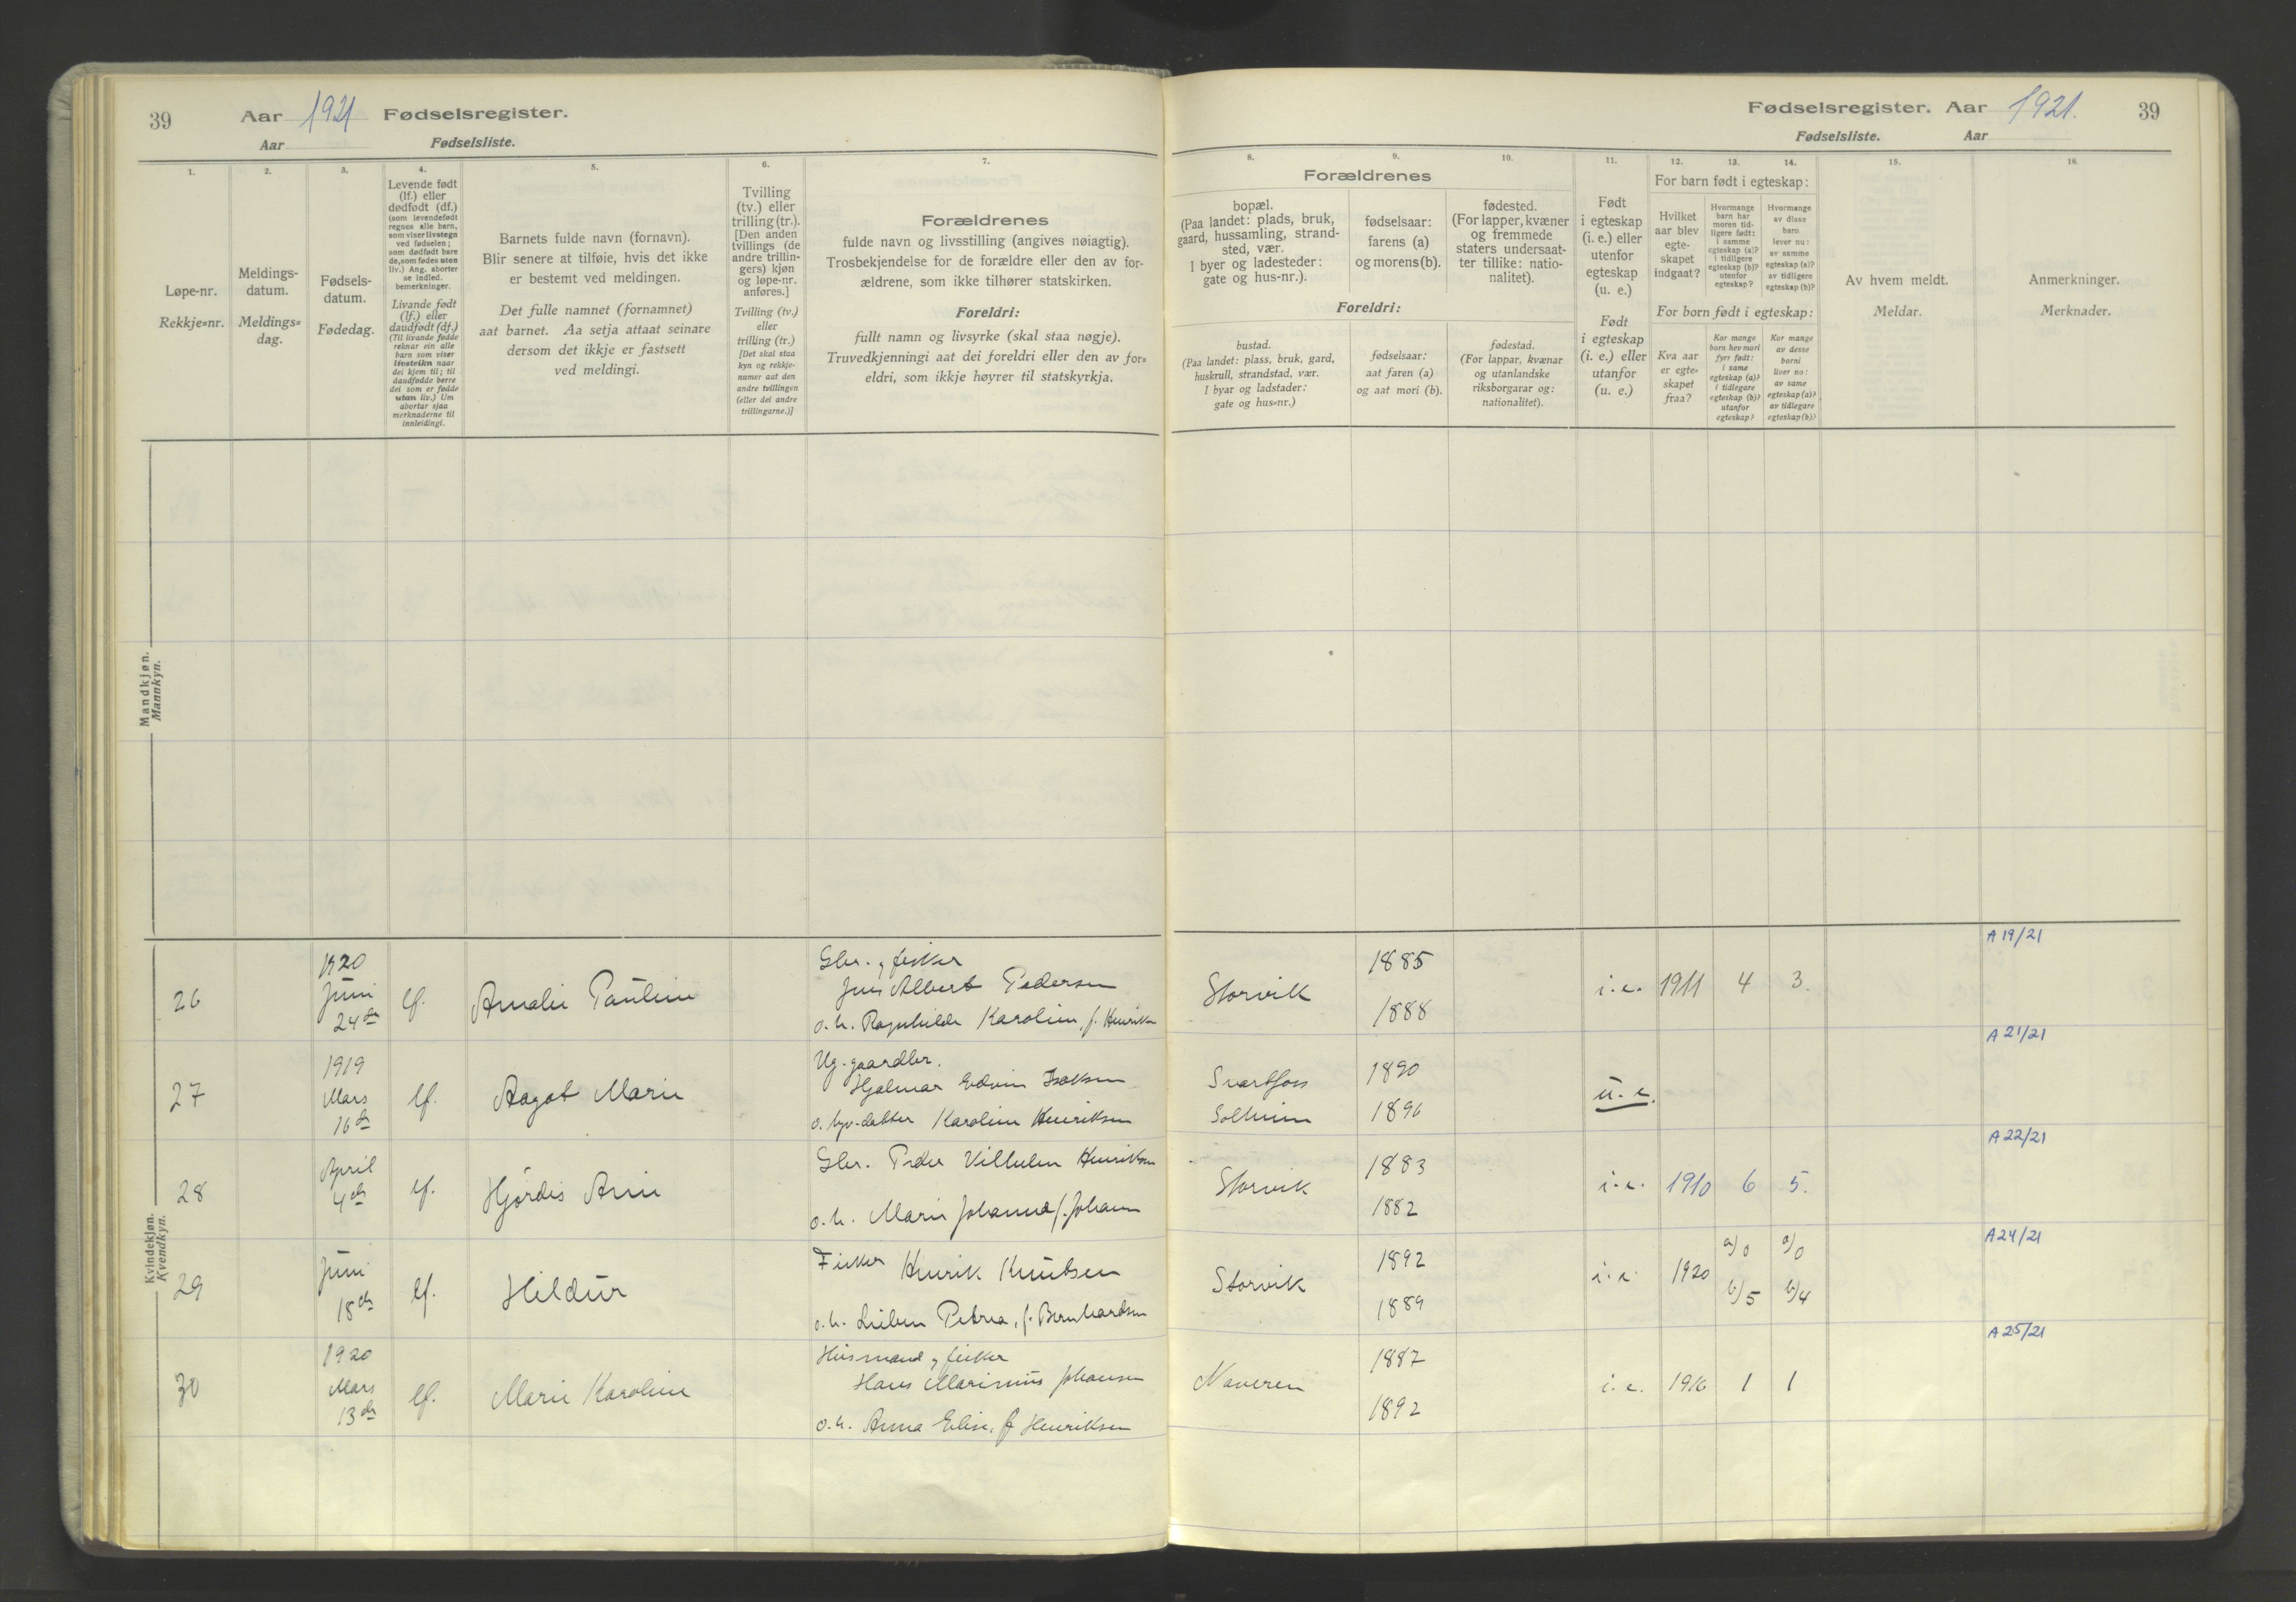 39
Aar 1921 Fødselsregister.
Aar Fødselsliste.
1.
2.
3.
4.
5.
6.
7.
Løpe-nr.
Rekkje=nr.
Meldings-
datum.
Meldings=
dag.
Fødsels-
datum.
Fødedag.
Levende født
(lf.) eller
dødfødt (df.)
(som levendefødt
regnes alle barn,
som viser livstegn
ved fødselen;
som dødfødt bare
de, som fødes uten
liv.) Ang. aborter
se indled.
bemerkninger.
Livande født
(lf.) eller
daudfødt (df.)
(Til livande fødde
reknar ein alle
barn som viser
livsteikn naar
dei kjem til; til
daudfødde berre
dei som er fødde
utan liv.) Um
abortar sjaa
merknaderne til
innleidingi.
Barnets fulde navn (fornavn).
Blir senere at tilføie, hvis det ikke
er bestemt ved meldingen.
Det fulle namnet (fornamnet)
aat barnet. Aa setja attaat seinare
dersom det ikkje er fastsett
ved meldingi.
Tvilling
(tv.) eller
trilling (tr.).
[Den anden
tvillings (de
andre trillin-
gers) kjøn
og løpe-nr.
anføres.]
Tvilling (tv.)
eller
trilling (tr.)
[Det skal staa
kyn og rekkje-
numer aat den
andre tvillingen
(eller dei andre
trillingarne.)]
Forældrenes
fulde navn og livsstilling (angives nøiagtig).
Trosbekjendelse for de forældre eller den av for-
ældrene, som ikke tilhører statskirken.
Foreldri:
fullt namn og livsyrke (skal staa nøgje).
Truvedkjenningi aat dei foreldri eller den av for=
eldri, som ikkje høyrer til statskyrkja.
Mandkjøn.
Mannkyn.
Kvindekjøn.
Kvendkyn.
26
1920
Juni
24de
lf.
Amalie Pauline
Gbr. og fisker
Jens Albert Pedersen
o. h. Ragnhilde Karoline, f. Henriks
27
1919
Mars
16de
lf.
Aagot Marie
Ug. gaardbr.
Hjalmar Edvin Isaksen
o. datter Karoline Henriksen
28
April
4de
lf.
Hjørdis Anni
Gbr. Peder Vilhelm Henriksen
o. h. Marie Johanna f. Johans
29
Juni
18de
lf.
Hildur
Fisker Henrik Knutsen
o. h. Petrea, f. Bernhardsen
30
1920
Mars
13de
lf.
Marie Karoline
Husmand og fisker
Hans Marinius Johansen
o. h. Anna Elise, f Henriksen
Fødselsregister. Aar 1921. 39
Fødselsliste. Aar
8.
9.
10.
11.
12.
13.
14.
15.
16.
Forældrenes
bopæl.
(Paa landet: plads, bruk,
gaard, hussamling, strand-
sted, vær.
I byer og ladesteder:
gate og hus-nr.).
fødselsaar:
farens (a)
og morens (b).
fødested.
(For lapper, kvæner
og fremmede
staters undersaat-
ter tillike: natio-
nalitet).
Foreldri:
bustad.
(Paa landet: plass, bruk, gard,
huskrull, strandstad, vær.
I byar og ladstader:
gate og hus=nr.)
fødselsaar:
aat faren (a)
og aat mori (b).
fødestad.
(For lappar, kvænar
og utanlandske
riksborgarar og:
nationalitet).
Født
i egteskap
(i. e.) eller
utenfor
egteskap
(u. e.)
Født
i egteskap
(i. e.) eller
utanfor
(u. e.)
For barn født i egteskap:
Hvilket
aar blev
egte-
skapet
indgaat?
Hvormange
barn har
moren tid-
ligere født:
i samme
egteskap (a)?
i tidligere
egteskap (b)?
utenfor
egteskap?
Hvormange
av disse
barn
lever nu:
av samme
egteskap (a)?
av tidligere
egteskap (b)?
For born født i egteskap:
Kva aar
er egte=
skapet
fraa?
Kor mange
born hev mori
fyrr født:
i same
egteskap (a)?
i tidlegare
egteskap (b)?
utanfor
egteskap?
Kor mange
av desse
borni
liver no:
av same
egteskap (a)?
av tidlegare
egteskap (b)?
Av hvem meldt.
Meldar.
Anmerkninger.
Merknader.
Storvik
1885
1888
i. e. 1911 4 3.
A 19/21
Svartfoss
Solheim
1890
1896
u. e.
A 21/21
Storvik
1883
1882
i. e. 1910 6 5.
A 22/21
Storvik
1892
1889
i. e. 1920
a) 0
b) 5
a) 0
b) 4
A 24/21
Naveren
1887
1892
i. e. 1916 1 1
A 25/21